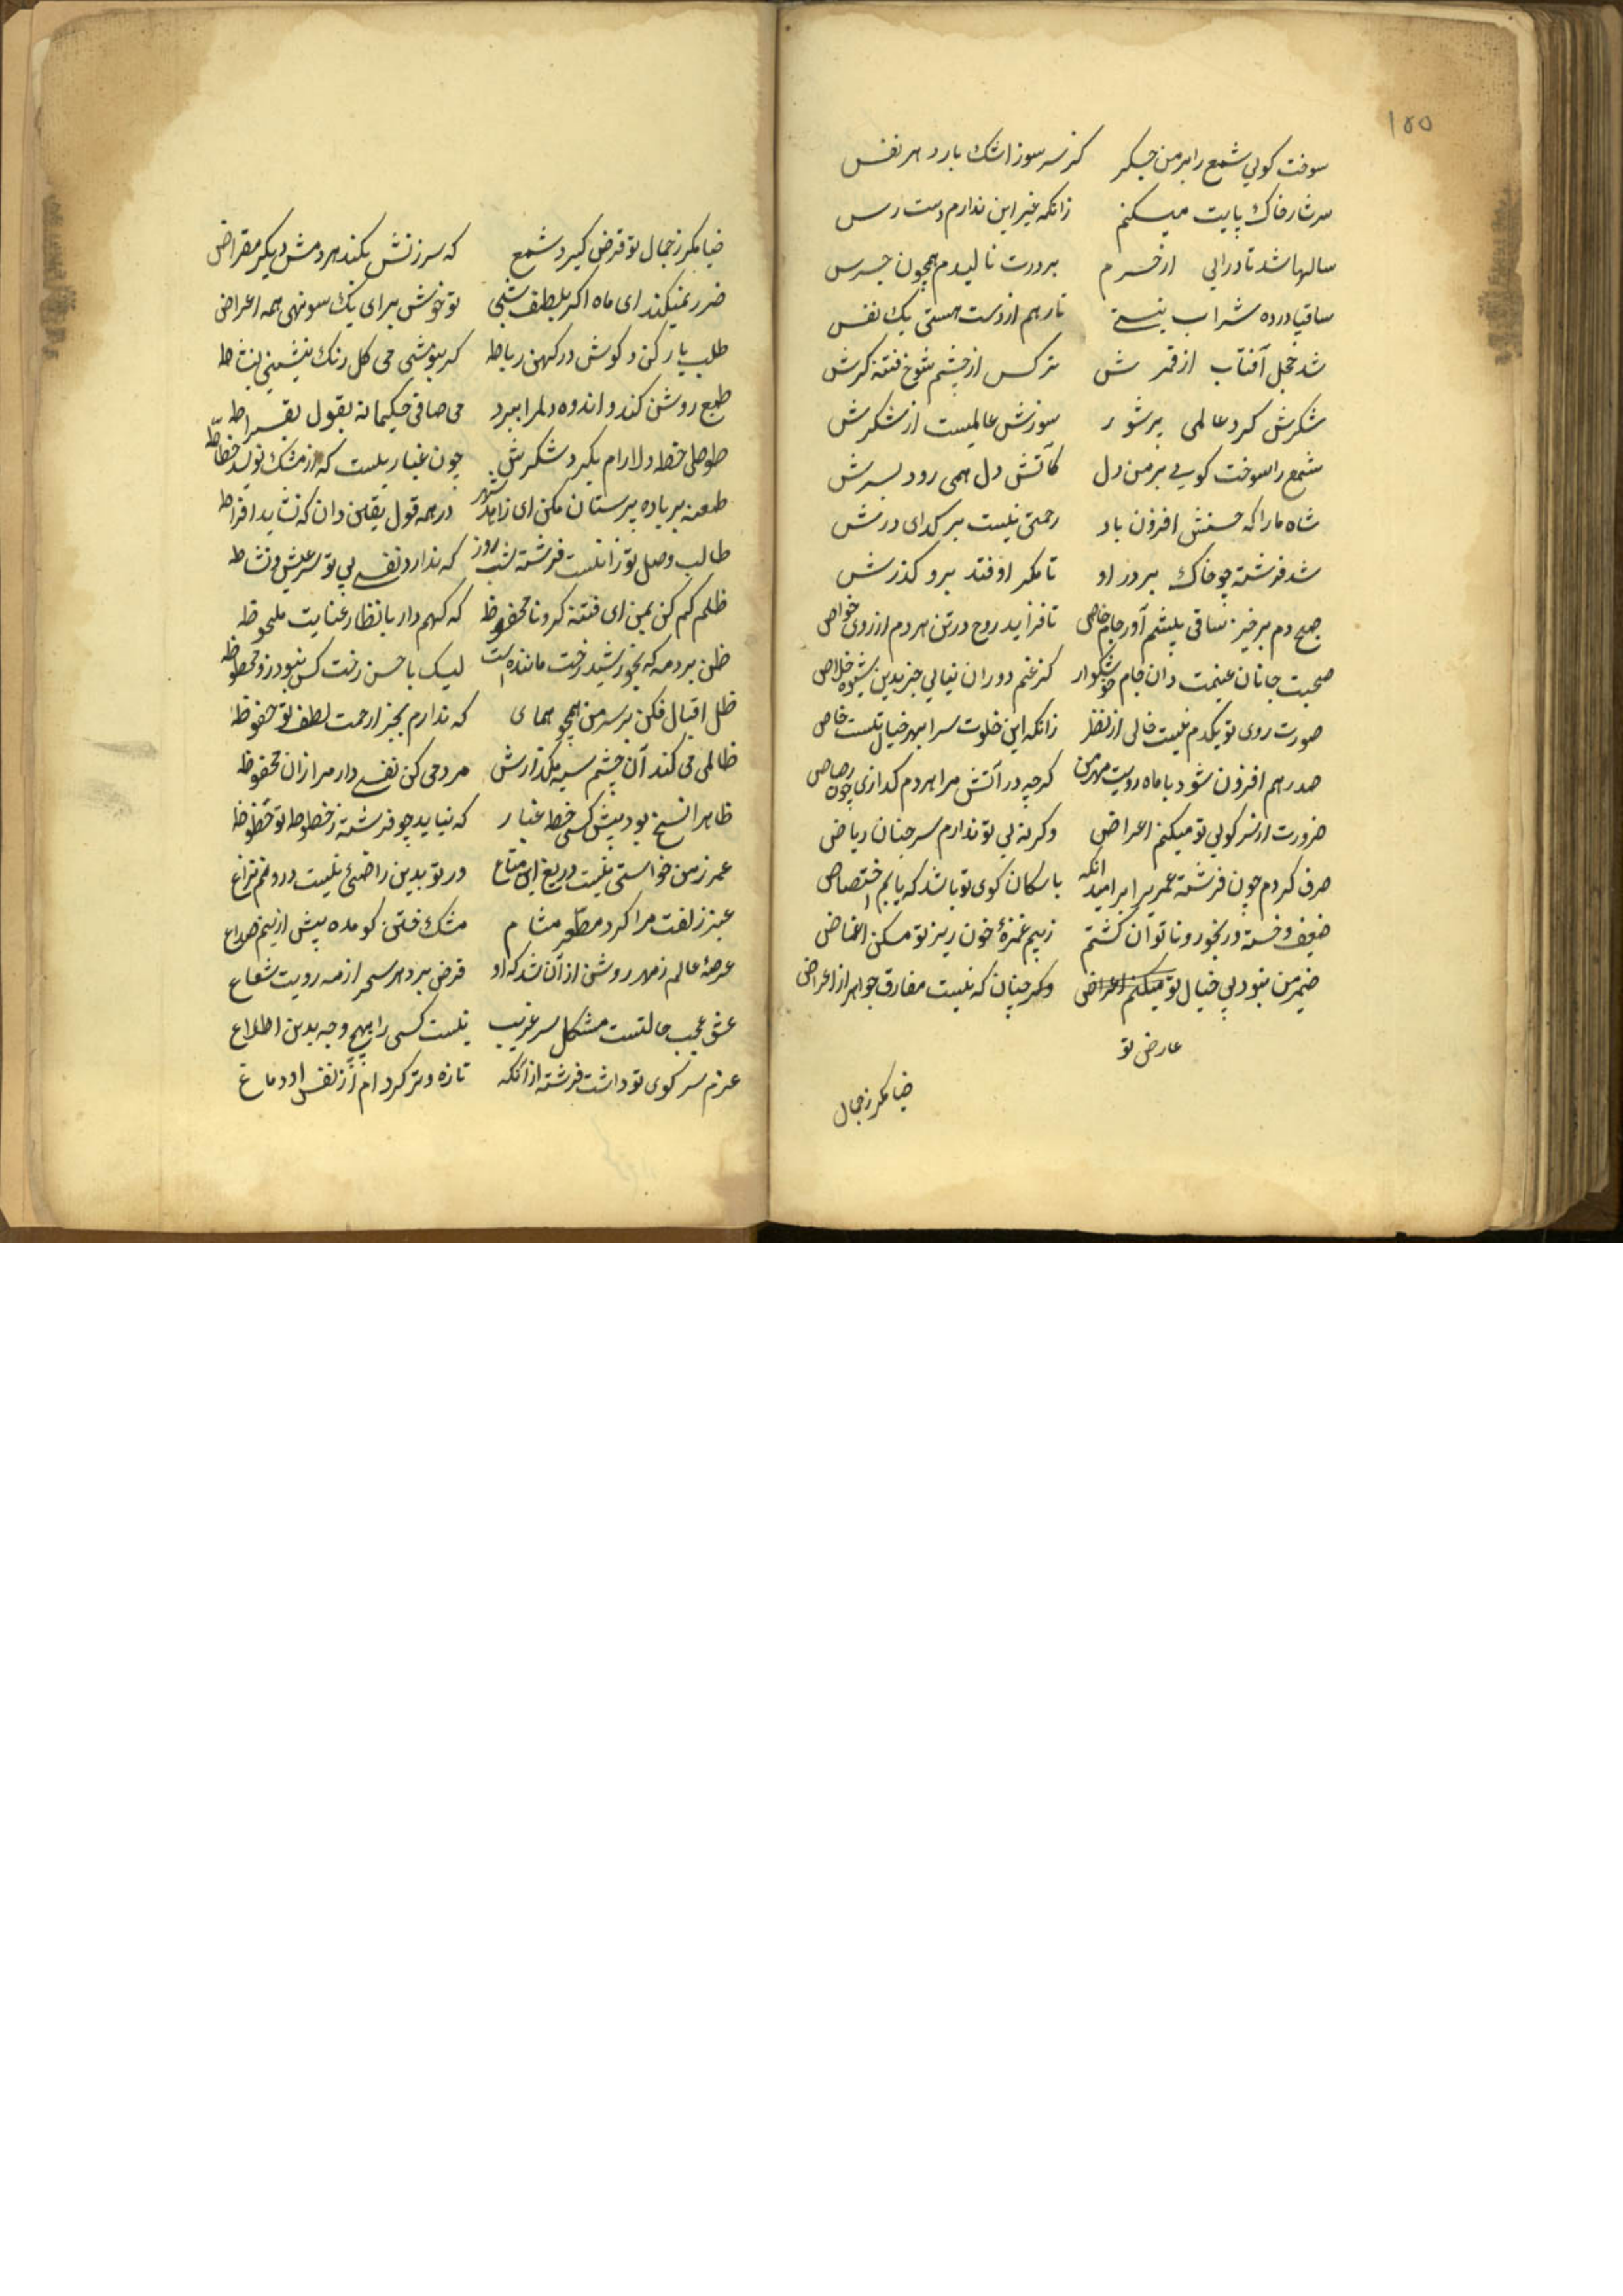 ۱۵۵
سوخت کویی شمع را بر من جگر کز سر سوز اشک بارد هر نفس
سر نثار خاک پایت میکنم زانکه غیر این ندارم دست رس
سالها شد تا درایی از خرم بر درت نالیدم همچون جرس
ساقیا درده شراب نیستی تا رهم از دست هستی یک نفس
شد خجل آفتاب از قمرش نرکس از چشم شوخ فتنه کرش
شکرش کرد عالمی پر شور سوزش عالمیست از شکرش
شمع را سوخت کویی بر من دل کآتش دل همی رود بسرش
شاه ما را که حسنش افزون باد رحمتی نیست بر کدای درش
شد فرشته چو خاک بر در او تا مکر اوفتد برو کذرش
صبح دم برخیز ساقی پیشم آور جام خاص تا فزاید روح در تن هر دم از روی خواص
صحبت جانان غنیمت دان جام خوشکوار کز غم دوران نیابی جز بدین شیوه خلاص
صورت روی تو یکدم نیست خالی از نظر زانکه این خلوت سرا بهر خیال تست خاص
صد رهم افزون شود با ماه رویت مهر من کرچه در آتش مرا هر دم کدازی چون رصاص
صرف کردم چون فرشته عمر بر امید انکه با سکان کوی تو باشد که یابم اختصاص
ضرورت از سر کویی تو میکنم اعراض وکرنه بی تو ندارم سر جنان ریاض
ضعیف و خسته و رنجور و ناتوان کشتم ز بیم غمزهٔ خون ریز تو مکن اغماض
ضمیر من نبود بی خیال تو میکنم اعراض وکر چنان که نیست مفارق جواهر از اعراض
عارض تو
ضیا مکر ز جمال
ضیا مکر ز جمال تو قرض کیرد شمع که سرزنش بکند هر دمش دیکر مقراض
ضرر نمیکند ای ماه اکر بلطف شبی تو خوش برای یک سو نهی همه اعراض
طلب یار کن و کوش در کهن رباط که بنوشی می کل رنک نشینی بنشاط
طبع روشن کند و اندوه دلرا ببرد می صافی حکیمانه بقول بقراط
طوطی خط دلارام بکیرد شکرش چون غبار یست که از مشک نویسد خطاط
طعنه بر باده پرستان مکن ای زاهد شهر در همه قول یقین دان که نشاید افراط
طالب وصل تو زانست فرشته شب و روز که ندارد نفسی بی تو سر عیش و نشاط
ظلم کم کن بمن ای فتنه کر و نا محفوظ که کهم دار بانظار عنایت ملحوظ
ظن برد مه که بخورشید رخت ماننده است لیک با حسن رخت کس نبود زو محظوظ
ظل اقبال فکن بر سر من همچو همای که ندارم بجز از رحمت لطف تو حفوظ
ظالمی می کند آن چشم سیه مکذارش مردمی کن نفسی دار مرا زان محفوظ
ظاهرا نسخ بود پیش کسی خط غبار که نیاید چو فرشته ز خطوط تو حظوظ
عمر ز من خواستی نیست دریغ این متاع ور تو بدین راضیی نیست درو هم نزاع
عنبر زلفت مرا کرد معطر مشام مشک ختن کو مده پیش ازینم صداع
عرصهٔ عالم ز مهر روشن از آن شد که او قرض برد هر سحر از مه رویت شعاع
عشق عجب حالتیست مشکل سر غریب نیست کسی را بهیچ وجه بدین اطلاع
عزم سر کوی تو داشت فرشته از آنکه تازه و تر کرد ام از نفس او دماغ